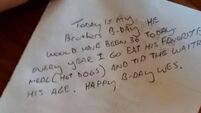 Today is my
Brothers B-Day. He
would have been 36 today
Every year I go eat his favorite
meal (hot dogs) and tip the waitr
his age. Happy B-Day Wes.